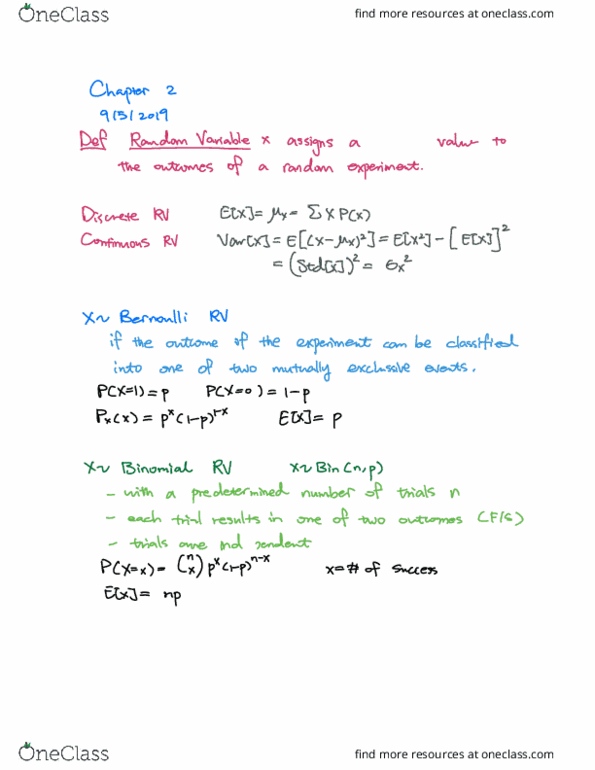 OneClass
find more resources at oneclass.com
Chapter 2
9/5/2019
Def Random Variable x assigns a value to
the outcomes of a random experiment.
Discrete RV E[X] = μx = Σ x P(x)
Continuous RV Var[X] = E[(X-μx)²] = E[X²] - [E[X]]²
= (Std[X])² = σx²
X~ Bernoulli RV
if the outcome of the experiment can be classified
into one of two mutually exclusive events.
P(X=1) = p P(X=0) = 1-p
Px(x) = pˣ(1-p)¹⁻ˣ E[X] = p
X~ Binomial RV X~Bin(n,p)
- with a predetermined number of trials n
- each trial results in one of two outcomes (F/S)
- trials are
P(X=x) = (n x) pˣ(1-p)ⁿ⁻ˣ x = # of success
E[X] = np
OneClass
find more resources at oneclass.com